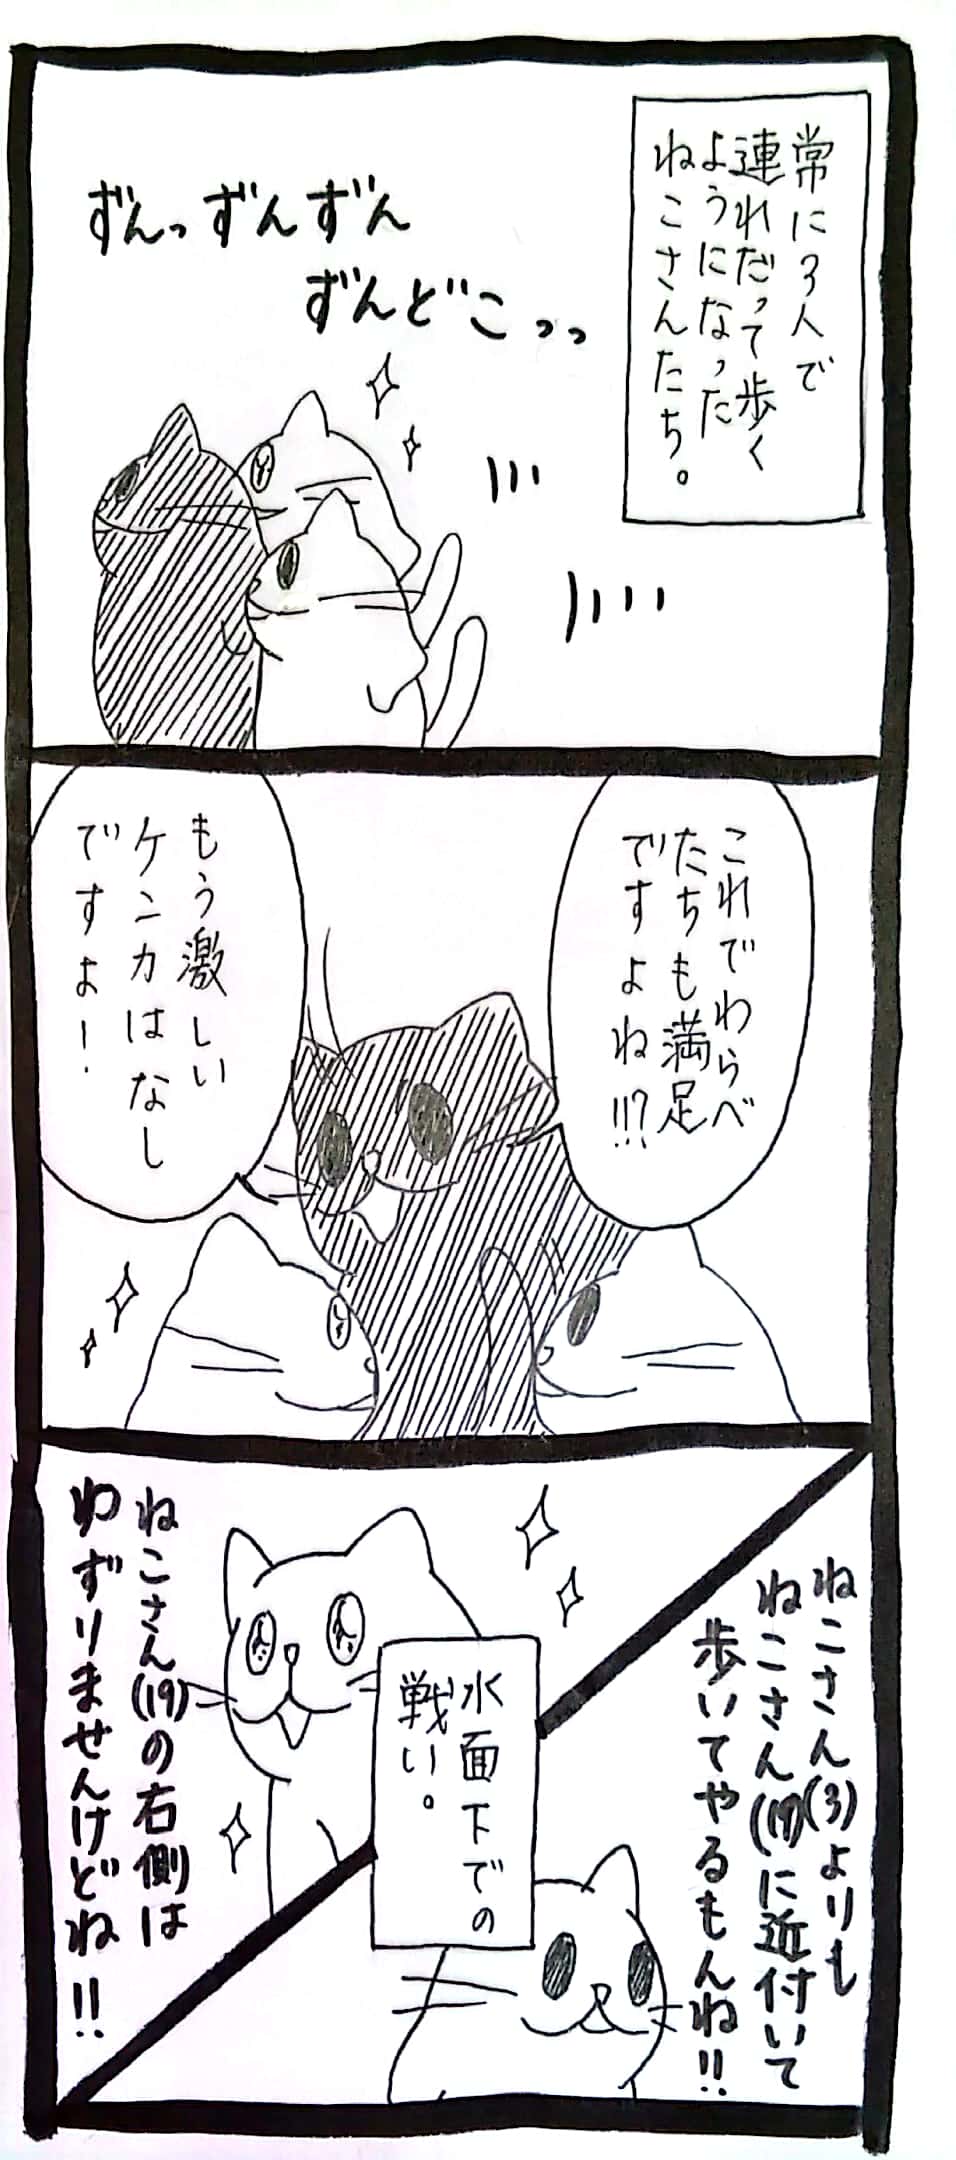 常に3人で
連れだって歩く
ようになった
ねこさんたち。
ずんっずんずん
ずんどこっっ
これでわらべ
たちも満足
ですよね!!?
もう激しい
ケンカはなし
ですよー!
ねこさん(3)よりも
ねこさん(19)に近付いて
歩いてやるもんね!!
水面下での
戦い。
ねこさん(19)の右側は
ゆずりませんけどね!!